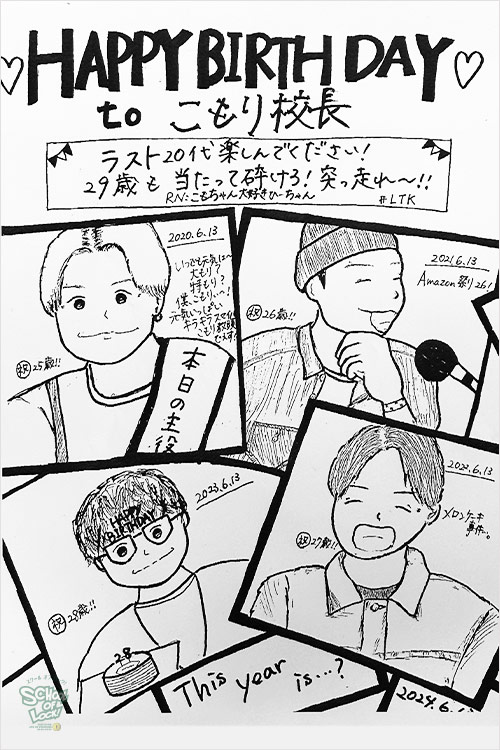 HAPPY BIRTHDAY
to こもり校長
ラスト20代楽しんでください!
29歳も 当たって砕けろ!突っ走れ〜!!
RN:こもちゃん大好きひーちゃん #LTK
2020.6.13
いつでも元気は〜
大もり?
特もり?
僕こもりぃ〜!
元気いっぱい
祝25歳!!
本日の主役
2021.6.13
Amazon祭り26!
祝26歳!!
2023.6.13
HAPPY
BIRTHDAY
祝28歳!!
28
2022.6.13
メロンケーキ
事件。
祝27歳!!
This year
is…?
2024.6.
SCHOOL
OF
LOCK!